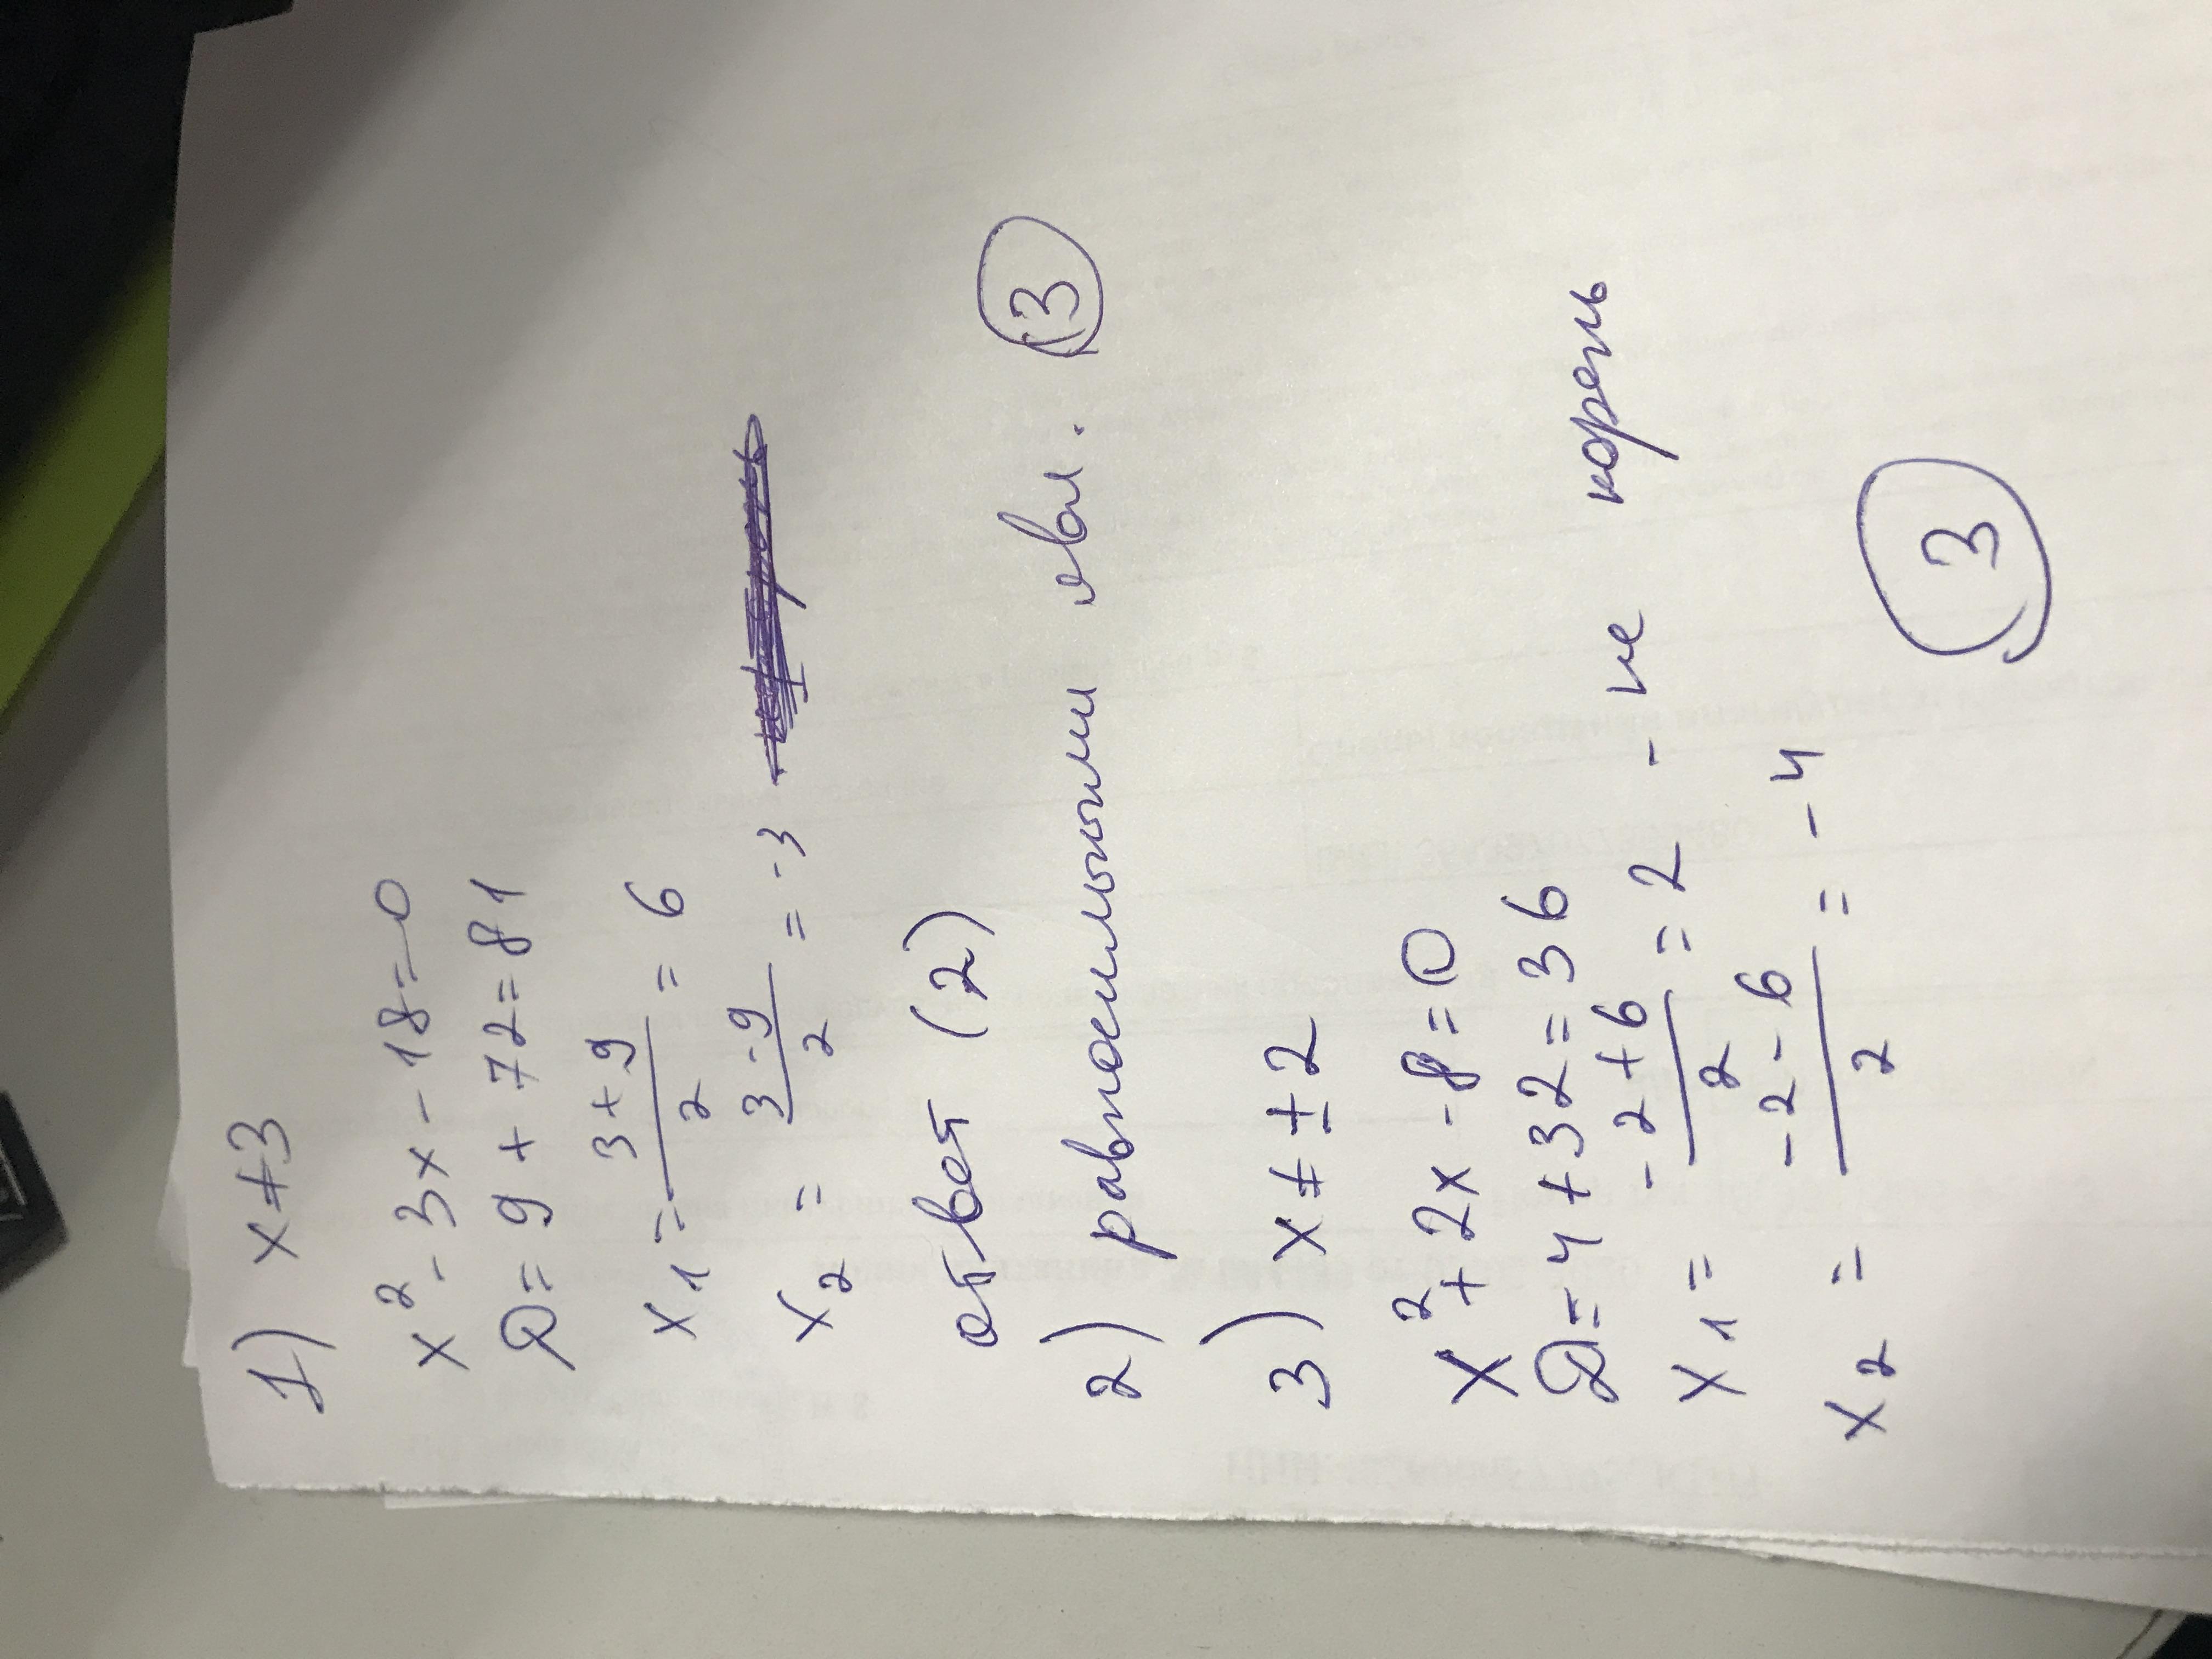 1) x ≠ 3
x² - 3x - 18 = 0
D = 9 + 72 = 81
x₁ = (3 + 9)/2 = 6
x₂ = (3 - 9)/2 = -3
ответ (2)
2) равносильными явл. (3)
3) x ≠ ± 2
x² + 2x - 8 = 0
D = 4 + 32 = 36
x₁ = (-2 + 6)/2 = 2 - не корень
x₂ = (-2 - 6)/2 = -4
(3)